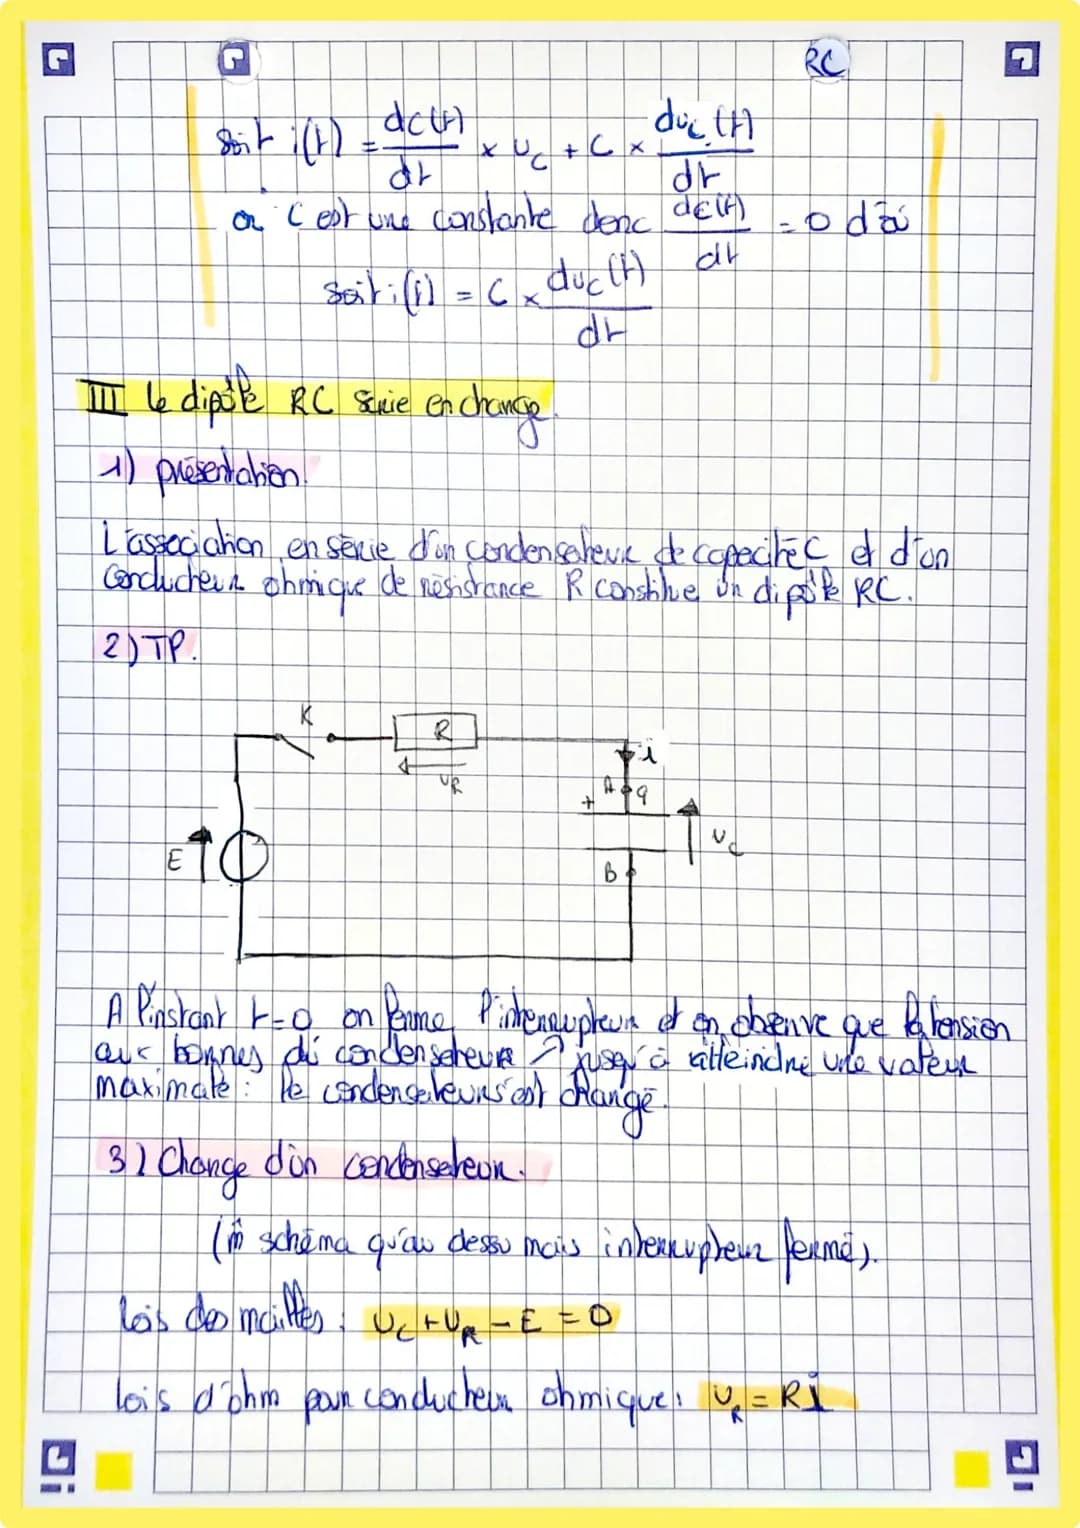 RC
Soit i(t) = dC(t)/dt × Uc + C × duc(t)/dt
or C est une constante donc dC(t)/dt = 0 d'où
Soit i(t) = C × duc(t)/dt
III le dipôle RC série en charge.
1) présentation.
L'association en série d'un condensateur de capacité C et d'un
conducteur ohmique de résistance R constitue un dipôle RC.
2) TP.
K
R
UR
i
A
q
+
E
Uc
B
A l'instant t=0 on ferme l'interrupteur et on observe que la tension
aux bornes du condensateur ↗ jusqu'à atteindre une valeur
maximale : le condensateur s'est chargé.
3) Charge d'un condensateur.
(m̂ schéma qu'au dessu mais interrupteur fermé).
lois des mailles : Uc + UR - E = 0
lois d'ohm pour conducteur ohmique : UR = Ri